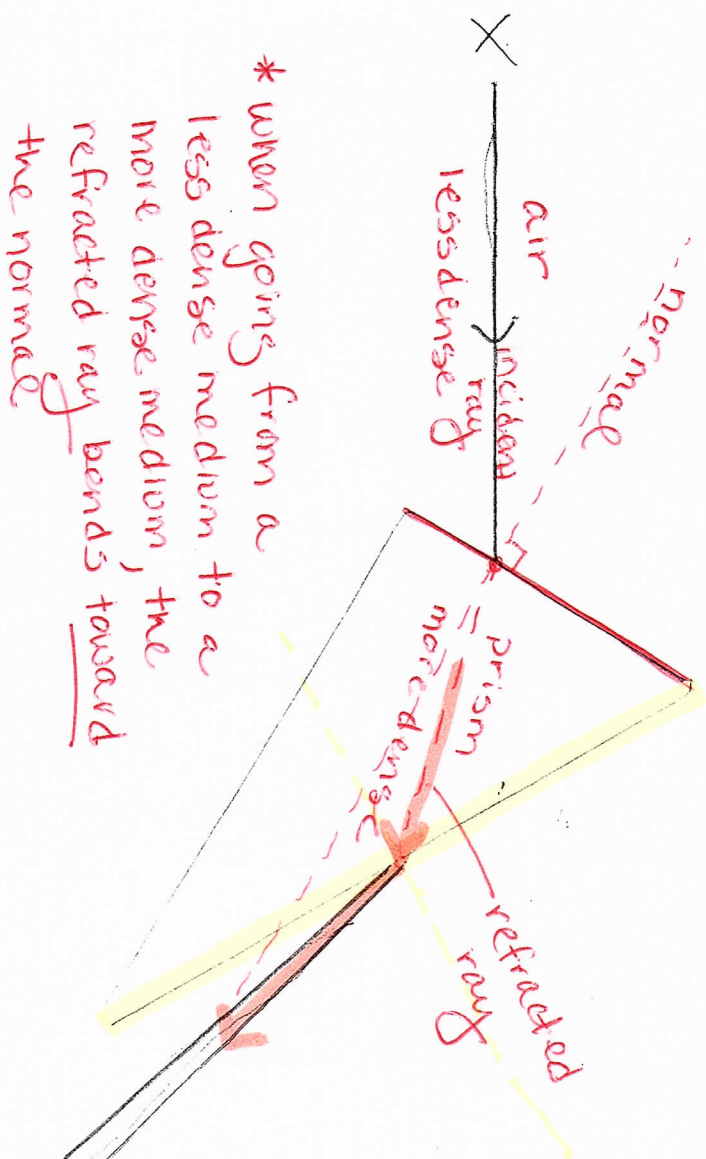 X
air
less dense
incident
ray
normal
prism
more dense
refracted
ray
* when going from a
less dense medium to a
more dense medium, the
refracted ray bends toward
the normal